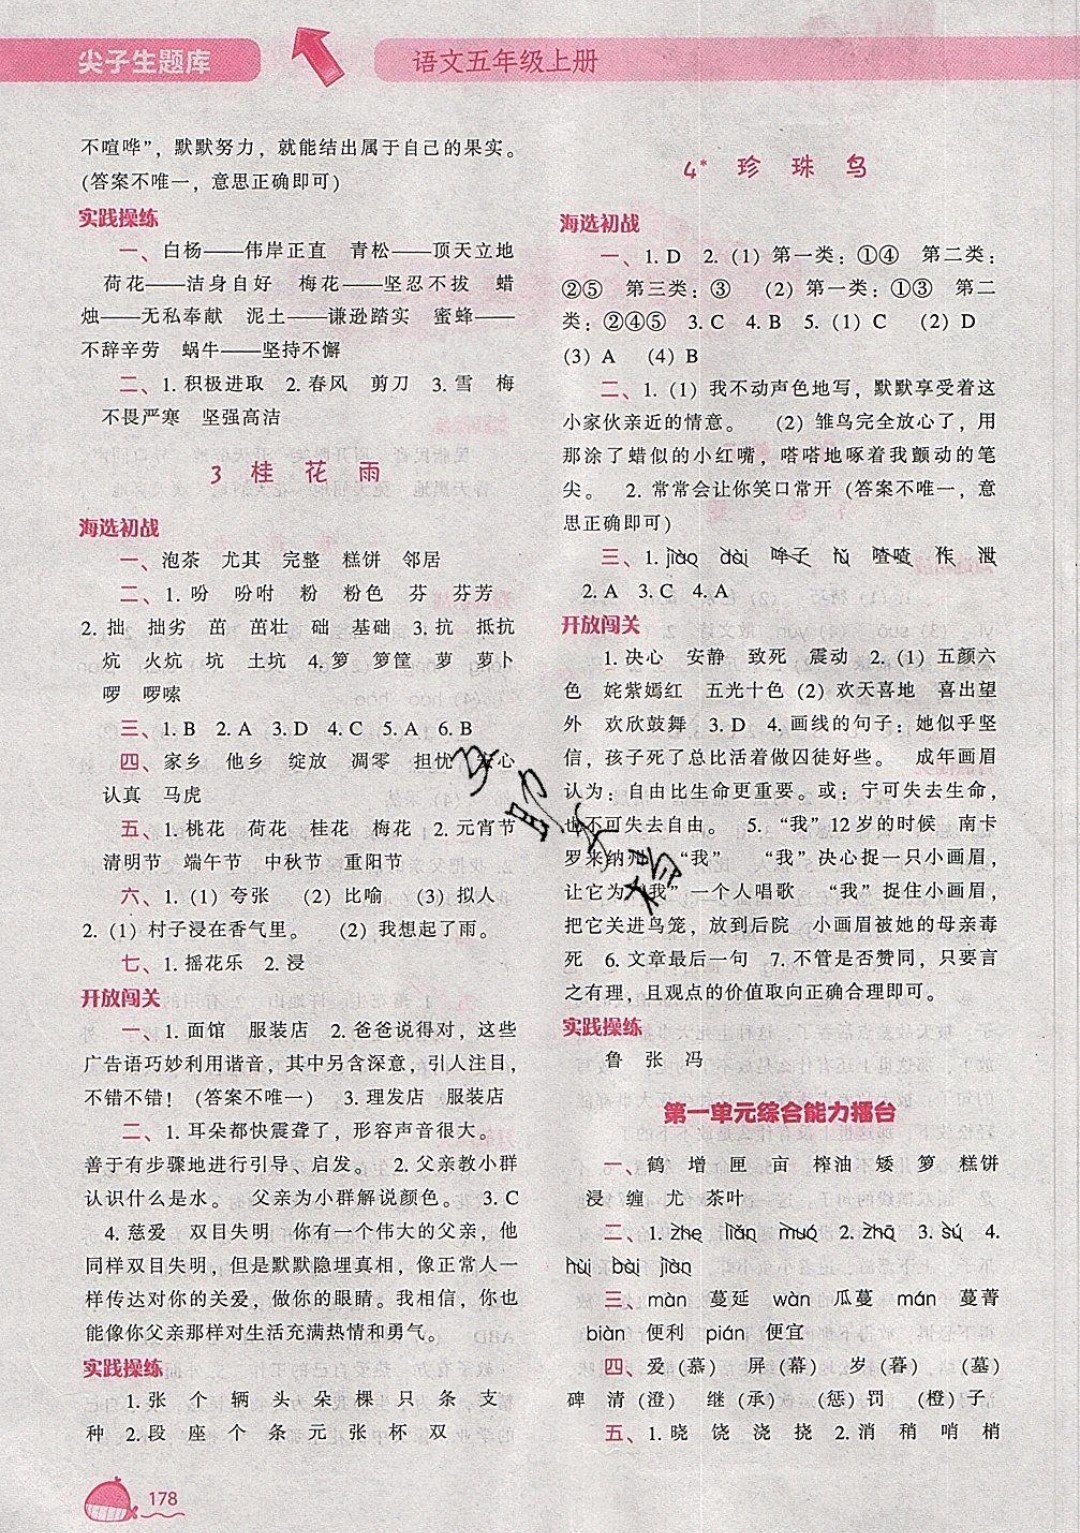 尖子生题库
语文五年级上册
不喧哗”，默默努力，就能结出属于自己的果实。
(答案不唯一，意思正确即可)
实践操练
一、白杨——伟岸正直　青松——顶天立地
荷花——洁身自好　梅花——坚忍不拔　蜡
烛——无私奉献　泥土——谦逊踏实　蜜蜂——
不辞辛劳　蜗牛——坚持不懈
二、1. 积极进取　2. 春风　剪刀　3. 雪　梅
不畏严寒　坚强高洁
3　桂　花　雨
海选初战
一、泡茶　尤其　完整　糕饼　邻居
二、1. 吩　吩咐　粉　粉色　芬　芬芳
2. 拙　拙劣　茁　茁壮　础　基础　3. 抗　抵抗
炕　火炕　坑　土坑　4. 箩　箩筐　萝　萝卜
啰　啰嗦
三、1. B　2. A　3. D　4. C　5. A　6. B
四、家乡　他乡　绽放　凋零　担忧　安心
认真　马虎
五、1. 桃花　荷花　桂花　梅花　2. 元宵节
清明节　端午节　中秋节　重阳节
六、1. (1) 夸张　(2) 比喻　(3) 拟人
2. (1) 村子浸在香气里。　(2) 我想起了雨。
七、1. 摇花乐　2. 浸
开放闯关
一、1. 面馆　服装店　2. 爸爸说得对，这些
广告语巧妙利用谐音，其中另含深意，引人注目，
不错不错！(答案不唯一)　3. 理发店　服装店
二、1. 耳朵都快震聋了，形容声音很大。
善于有步骤地进行引导、启发。　2. 父亲教小群
认识什么是水。　父亲为小群解说颜色。　3. C
4. 慈爱　双目失明　你有一个伟大的父亲，他
同样双目失明，但是默默隐埋真相，像正常人一
样传达对你的关爱，做你的眼睛。我相信，你也
能像你父亲那样对生活充满热情和勇气。
实践操练
1. 张　个　辆　头　朵　棵　只　条　支
种　2. 段　座　个　条　元　张　杯　双
178
4*　珍　珠　鸟
海选初战
一、1. D　2. (1) 第一类：①④　第二类：
②⑤　第三类：③　(2) 第一类：①③　第二
类：②④⑤　3. C　4. B　5. (1) C　(2) D
(3) A　(4) B
二、1. (1) 我不动声色地写，默默享受着这
小家伙亲近的情意。　(2) 雏鸟完全放心了，用
那涂了蜡似的小红嘴，嗒嗒地啄着我颤动的笔
尖。　2. 常常会让你笑口常开 (答案不唯一，意
思正确即可)
三、1. jiào　dài　哞子　fú　喳喳　柞　泄
2. A　3. C　4. A
开放闯关
1. 决心　安静　致死　震动　2. (1) 五颜六
色　姹紫嫣红　五光十色 (2) 欢天喜地　喜出望
外　欢欣鼓舞　3. D　4. 画线的句子：她似乎坚
信，孩子死了总比活着做囚徒好些。　成年画眉
认为：自由比生命更重要。或：宁可失去生命，
也不可失去自由。　5. “我” 12 岁的时候　南卡
罗来纳州　“我”　“我” 决心捉一只小画眉，
让它为 “我” 一个人唱歌　“我” 捉住小画眉，
把它关进鸟笼，放到后院　小画眉被她的母亲毒
死　6. 文章最后一句　7. 不管是否赞同，只要言
之有理，且观点的价值取向正确合理即可。
实践操练
鲁　张　冯
第一单元综合能力擂台
一、鹤　增　匣　亩　榨油　矮　箩　糕饼
浸　缠　尤　茶叶
二、1. zhe　liǎn　muó　2. zhā　3. sú　4.
huì　bài　jiàn
三、màn　蔓延　wàn　瓜蔓　mán　蔓菁
biàn　便利　pián　便宜
四、爱 (慕)　屏 (幕)　岁 (暮)　(墓)
碑　清 (澄)　继 (承)　(惩) 罚　(橙) 子
五、1. 晓　饶　浇　挠　2. 消　稍　哨　梢